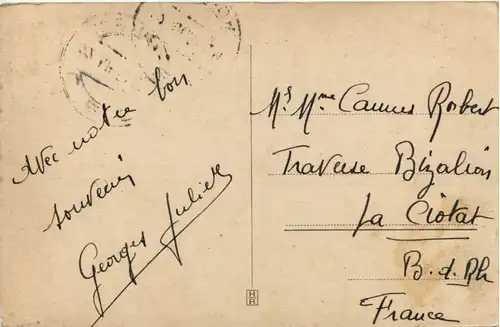 Avec notre bon
souvenir
Georges Juliette
Mr Mme Camus Robert
Traverse Bizalion
La Ciotat
B.d.Rh
France